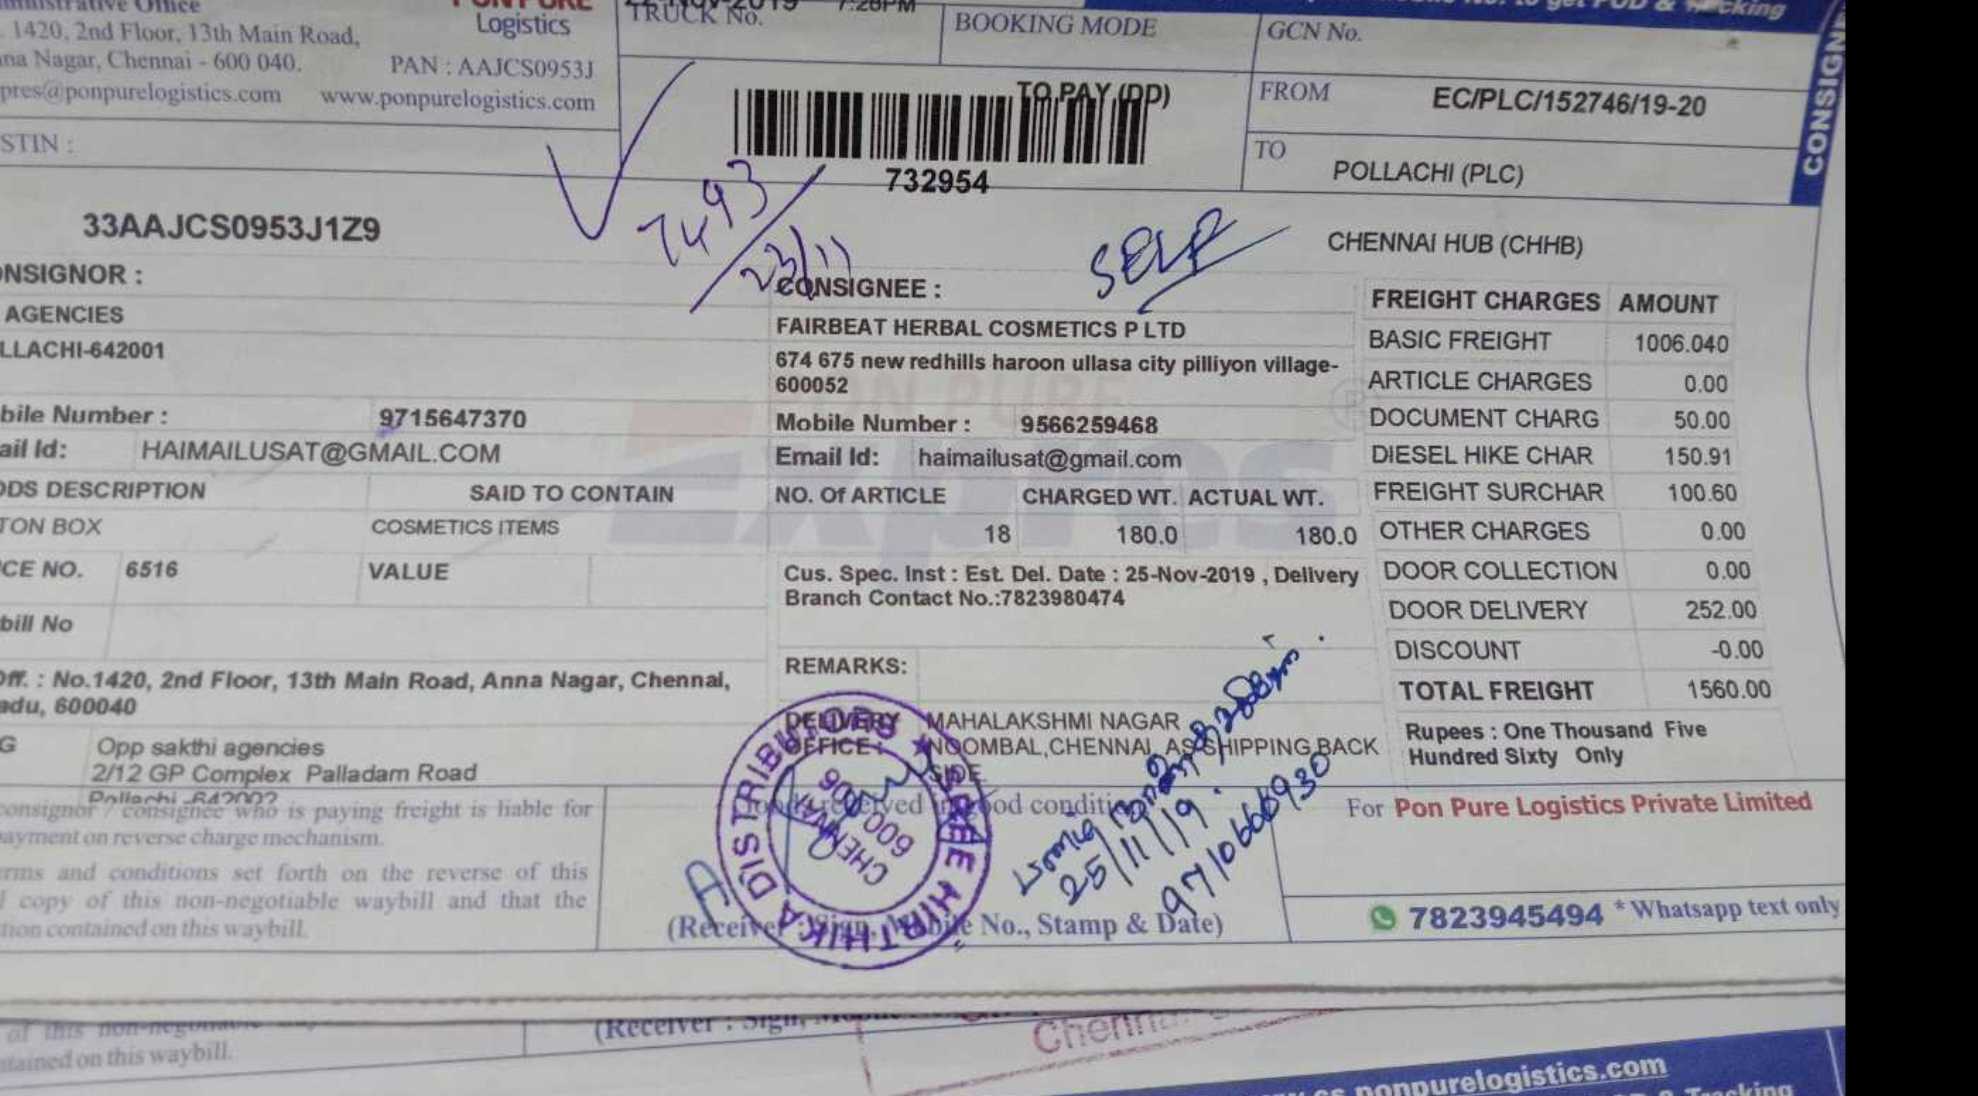 ministrative Office
PON PURE
Logistics
1420, 2nd Floor, 13th Main Road,
na Nagar, Chennai - 600 040.
PAN : AAJCS0953J
pres@ponpurelogistics.com www.ponpurelogistics.com
STIN :
33AAJCS0953J1Z9
TRUCK No.
7:28PM
BOOKING MODE
TO PAY (DD)
732954
7493
23/11
SELF
GCN No.
FROM EC/PLC/152746/19-20
TO
POLLACHI (PLC)
CHENNAI HUB (CHHB)
CONSIGNE
ONSIGNOR :
AGENCIES
LLACHI-642001
bile Number : 9715647370
ail Id: HAIMAILUSAT@GMAIL.COM
CONSIGNEE :
FAIRBEAT HERBAL COSMETICS P LTD
674 675 new redhills haroon ullasa city pilliyon village-
600052
Mobile Number : 9566259468
Email Id: haimailusat@gmail.com
ODS DESCRIPTION SAID TO CONTAIN NO. Of ARTICLE CHARGED WT. ACTUAL WT.
TON BOX COSMETICS ITEMS 18 180.0 180.0
ICE NO. 6516 VALUE
Cus. Spec. Inst : Est. Del. Date : 25-Nov-2019 , Delivery
Branch Contact No.:7823980474
bill No
REMARKS:
Off. : No.1420, 2nd Floor, 13th Main Road, Anna Nagar, Chennai,
adu, 600040
G Opp sakthi agencies
2/12 GP Complex Palladam Road
Pollachi -642002
DELIVERY MAHALAKSHMI NAGAR
OFFICE : NOOMBAL,CHENNAI, AS SHIPPING BACK
SIDE
FREIGHT CHARGES AMOUNT
BASIC FREIGHT 1006.040
ARTICLE CHARGES 0.00
DOCUMENT CHARG 50.00
DIESEL HIKE CHAR 150.91
FREIGHT SURCHAR 100.60
OTHER CHARGES 0.00
DOOR COLLECTION 0.00
DOOR DELIVERY 252.00
DISCOUNT -0.00
TOTAL FREIGHT 1560.00
Rupees : One Thousand Five
Hundred Sixty Only
consignor / consignee who is paying freight is liable for
payment on reverse charge mechanism.
rms and conditions set forth on the reverse of this
copy of this non-negotiable waybill and that the
tion contained on this waybill.
Goods received in good condition
SREE HIRTHIKA DISTRIBUTORS
CHENNAI
600 106
25/11/19
9710666930
(Receiver : Sign, Mobile No., Stamp & Date)
For Pon Pure Logistics Private Limited
7823945494 * Whatsapp text only
of this non-negotiable
tained on this waybill.
(Receiver : Sign,
Chennai
ponpurelogistics.com
Tracking